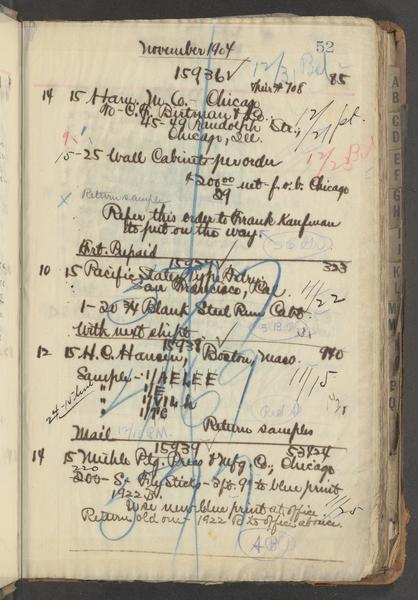 November 1904
52
15936 ✓
12/31
85
Their # 708
14 15 Ham. M. Co. - Chicago
To - C. H. Butman & Co.
45-49 Randolph Str.,
Chicago, Ill.
12/21
12/23
15-25 Wall Cabinets per order
$200.00 net - f.o.b. Chicago
Return samples
Refer this order to Frank Kaufman
to put on the way.
Frt. Prepaid
15937
323
10 15 Pacific States Type Fdry.
San Francisco, Cal.
11/22
1-20 3/4 Blank Steel Run Cabt
With next shipt
15938 ✓
940
12 15 H. C. Hansen, Boston, Mass.
11/15
Samples - 1/A E L E E
" 1/E
" 1/
" 1/
Return samples
Mail
15939
53424
14 15 Miehle Ptg. Press & Mfg. Co., Chicago
220
200 - Sticks - to blue print
1922 B.
Use new blue print at office.
11/25
Return old one - 1922 B to office at once.
A
B
C
D
E
F
G
H
I
J
K